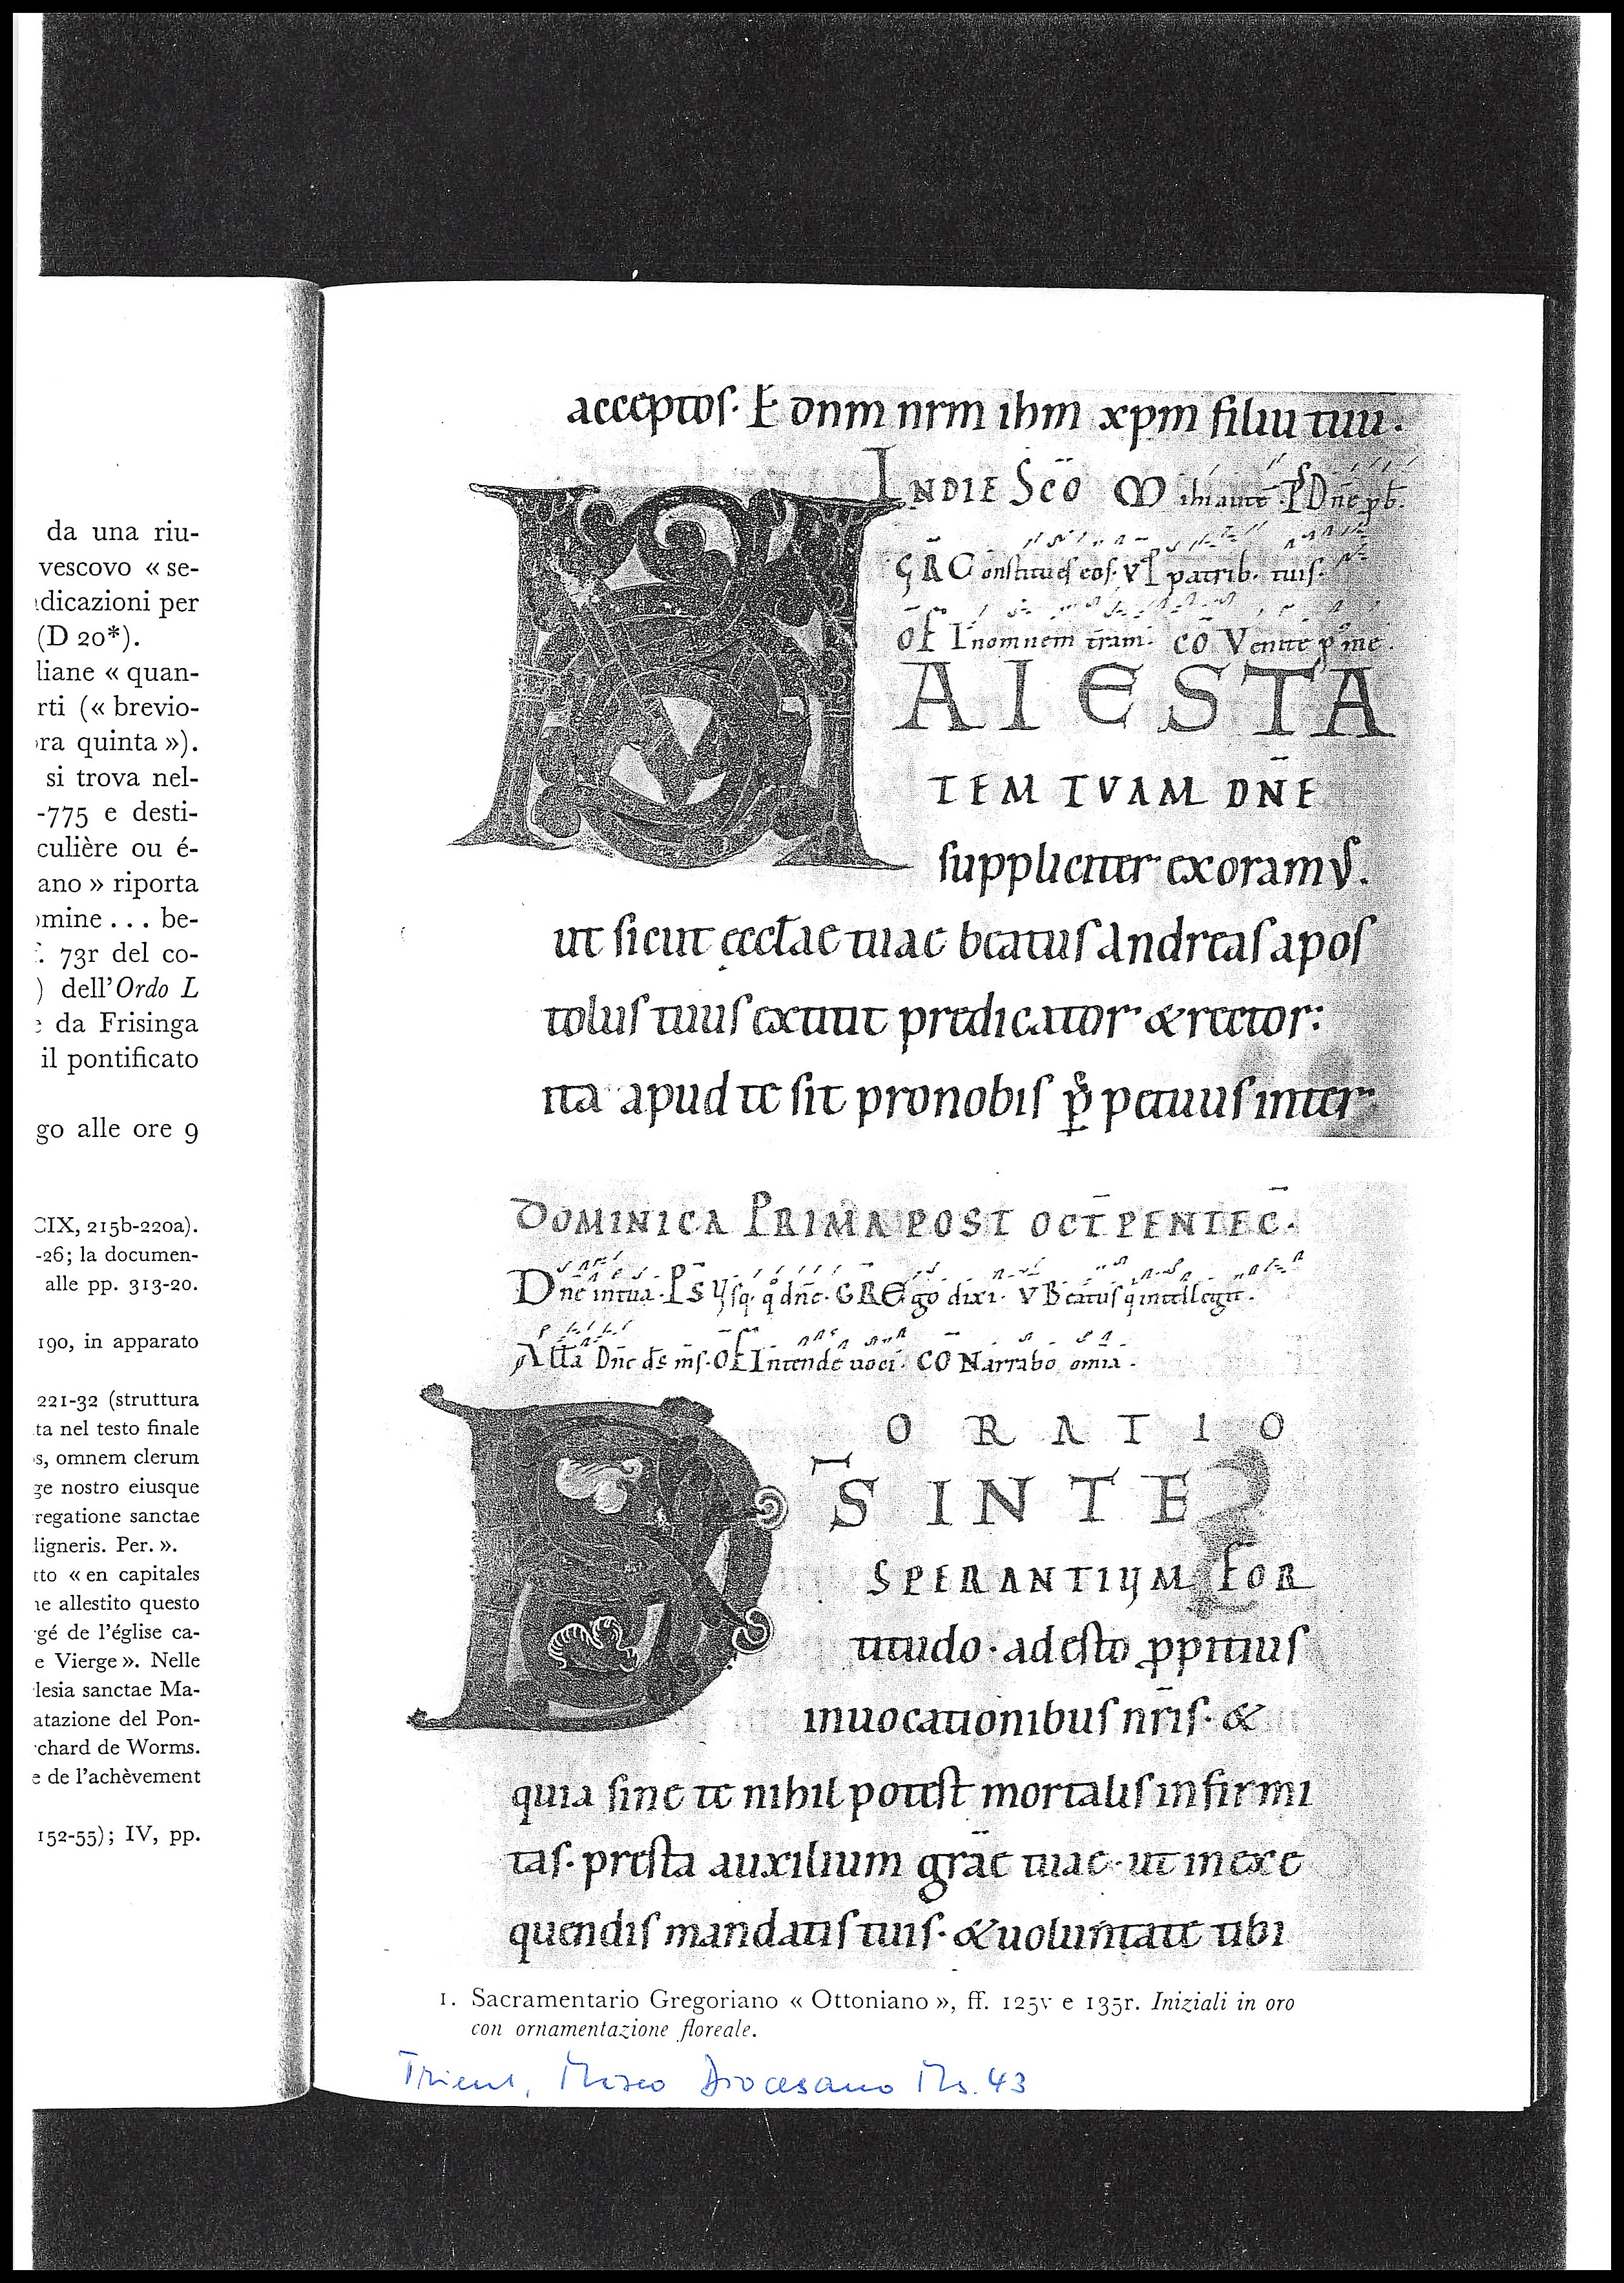 da una riu-
vescovo « se-
dicazioni per
(D 20*).
liane « quan-
rti (« brevio-
ra quinta »).
si trova nel-
-775 e desti-
culière ou é-
ano » riporta
omine . . . be-
. 73r del co-
) dell'Ordo L
e da Frisinga
il pontificato
go alle ore 9
CIX, 215b-220a).
-26; la documen-
alle pp. 313-20.
190, in apparato
221-32 (struttura
ta nel testo finale
s, omnem clerum
ge nostro eiusque
regatione sanctae
ligneris. Per. ».
tto « en capitales
ne allestito questo
gé de l'église ca-
e Vierge ». Nelle
lesia sanctae Ma-
atazione del Pon-
chard de Worms.
e de l'achèvement
152-55); IV, pp.
acceptos· P̄ dnm nrm ihm xpm filiu tuu·
INDIE SCŌ Mihi autē· PS Dnē pb̄.
GR̄ Constitues eos· V P patrib· tuis·
OF̄ In omnem trām· CŌ Venite p me·
M AIESTA
TEM TVAM DN̄E
suppliciter exoramus.
ut sicut ęccłae tuae beatus Andreas apos
tolus tuus extitit predicator & rector:
ita apud te sit pro nobis p̄petuus inter
DOMINICA PRIMA POST OCT̄ PENTEC̄.
Dnē in tua· PS Ysq· q̊ dnē· GR Ego dixi· V Beatus q intellegit·
Alła Dnē ds̄ ms̄· OF Intende uoci· CO Narrabo omīa·
ORATIO
D S̄ IN TE
SPERANTIVM FOR
titudo· adesto ꝓpitius
inuocationibus nrīs· &
quia sine te nihil potest mortalis infirmi
tas· presta auxilium grāe tuae· ut in exe
quendis mandatis tuis· & uoluntate tibi
1. Sacramentario Gregoriano « Ottoniano », ff. 125v e 135r. Iniziali in oro
con ornamentazione floreale.
Trient, Museo Diocesano Ms. 43